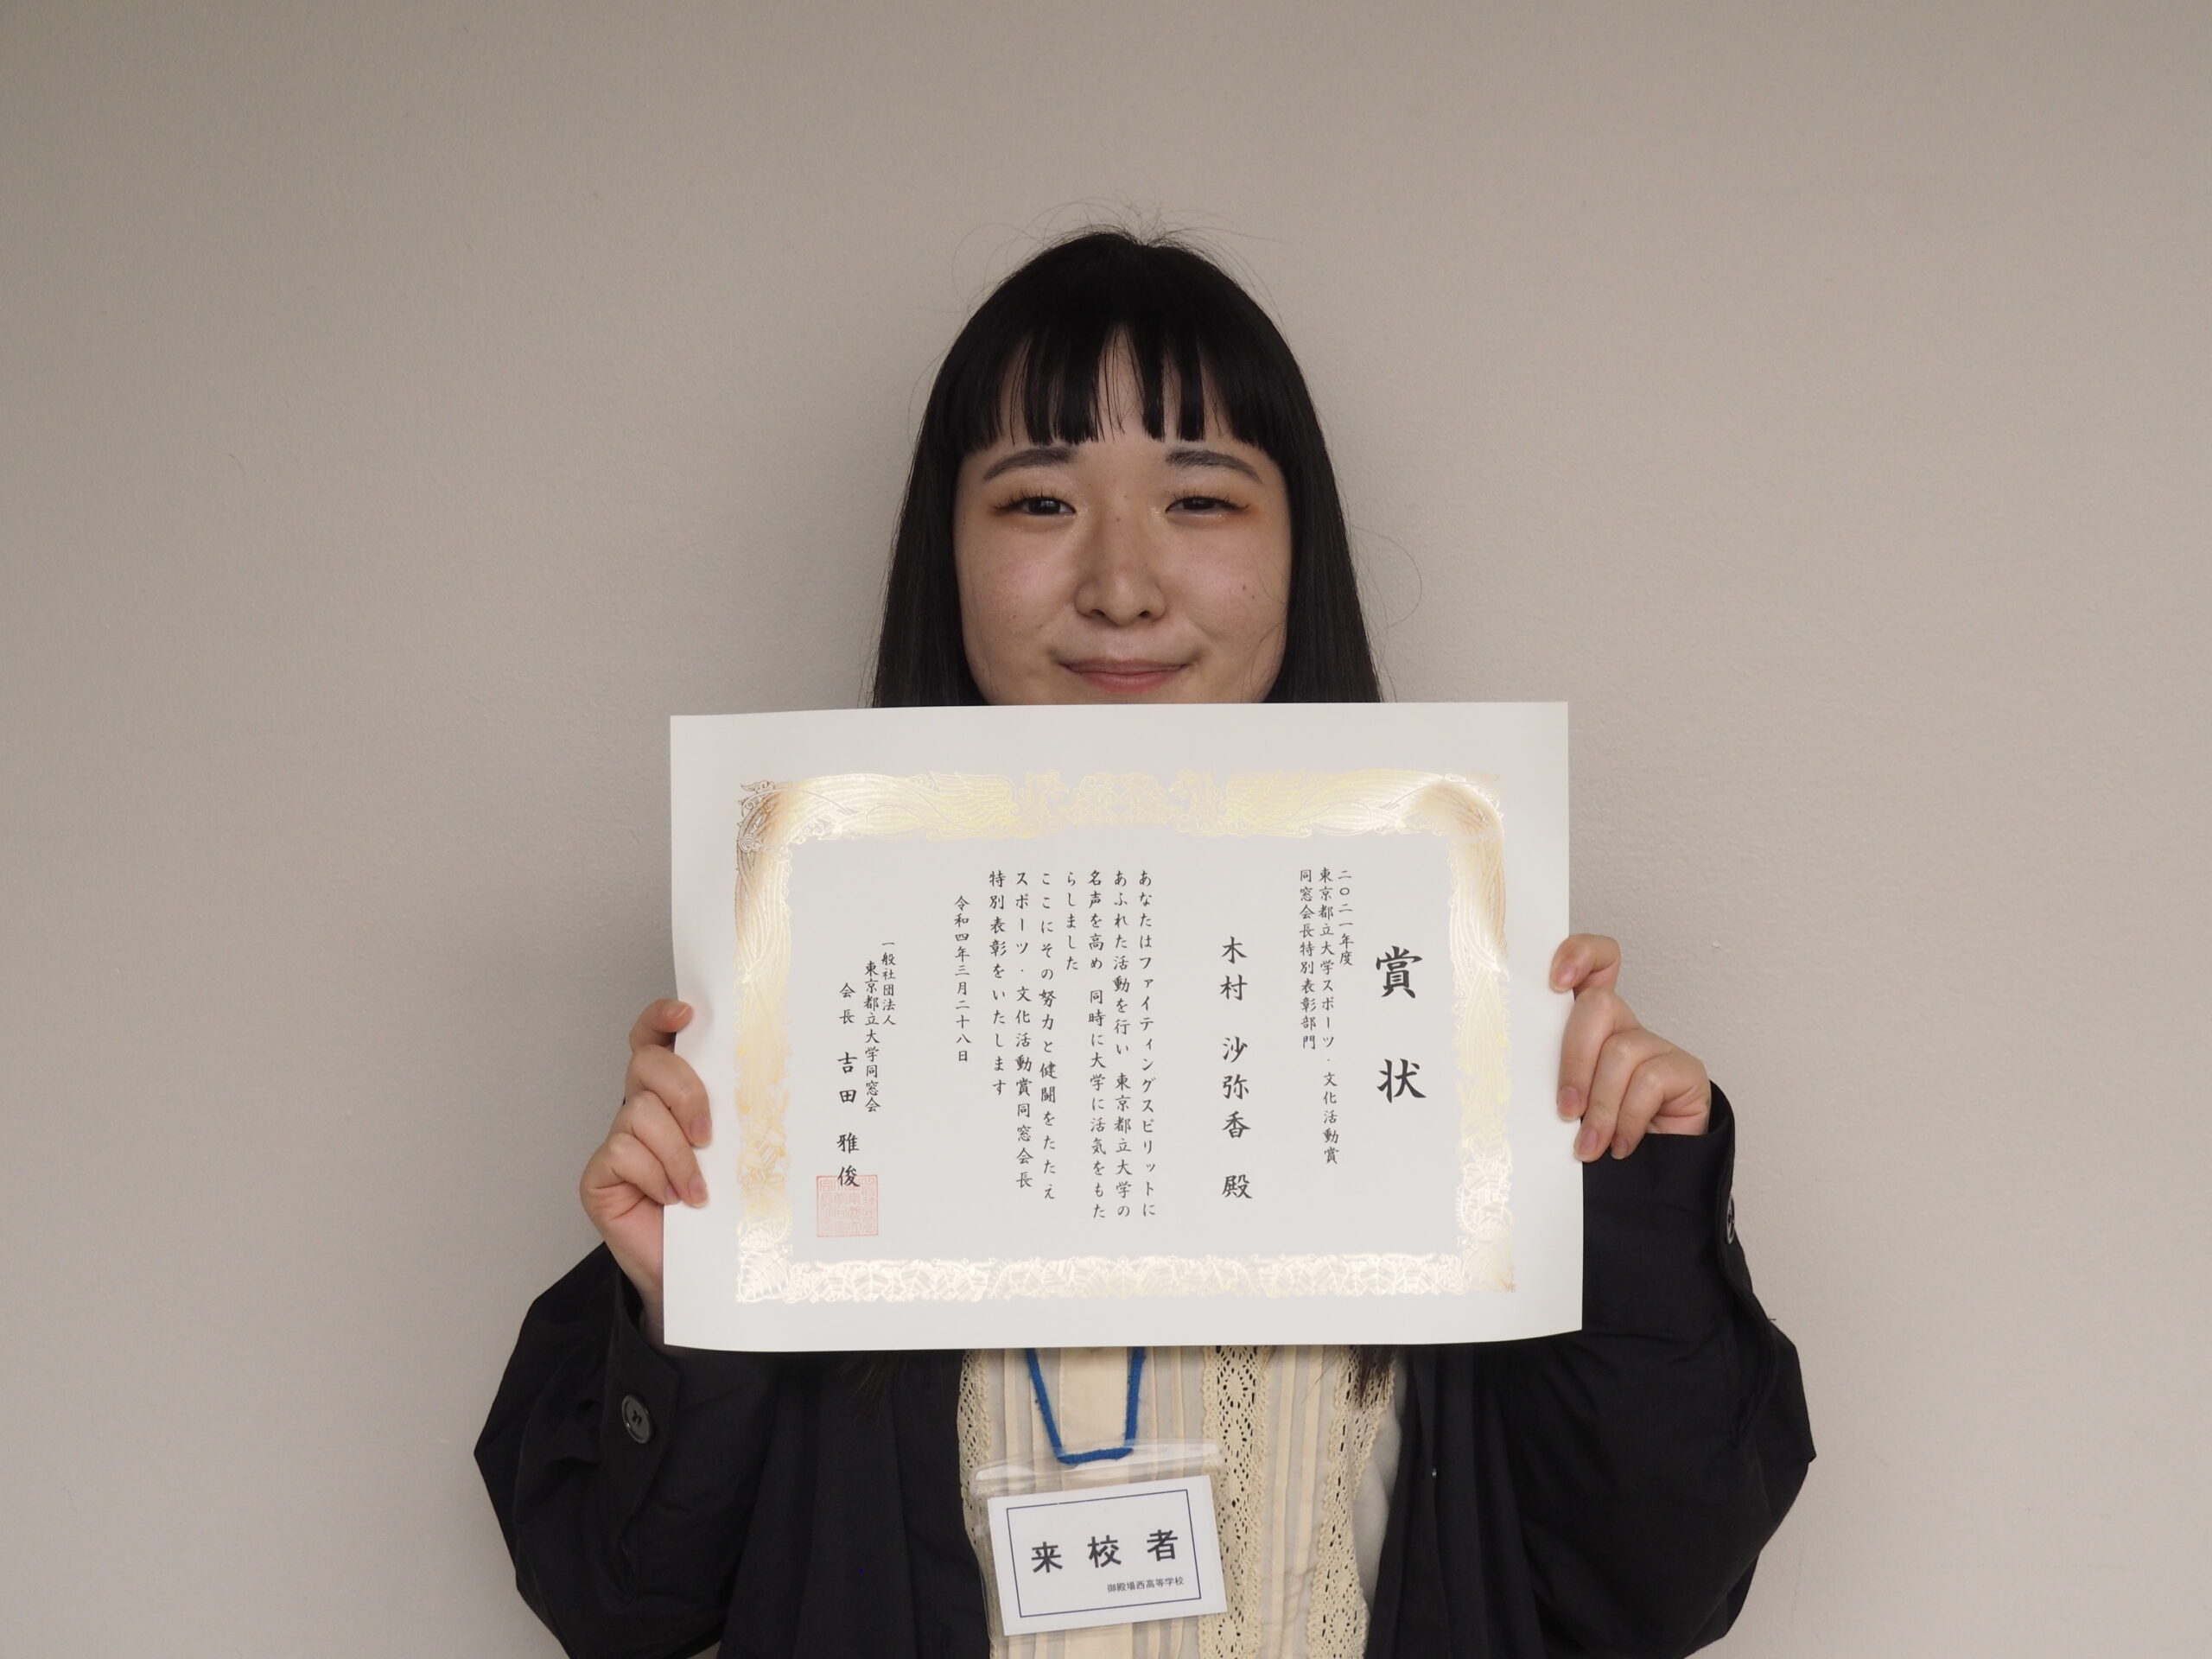 賞状
二〇二一年度
東京都立大学スポーツ・文化活動賞
同窓会長特別表彰部門
木村 沙弥香 殿
あなたはファイティングスピリットに
あふれた活動を行い 東京都立大学の
名声を高め 同時に大学に活気をもた
らしました
ここにその努力と健闘をたたえ
スポーツ・文化活動賞同窓会長
特別表彰をいたします
令和四年三月二十八日
一般社団法人
東京都立大学同窓会
会長 吉田 雅俊
来校者
御殿場西高等学校